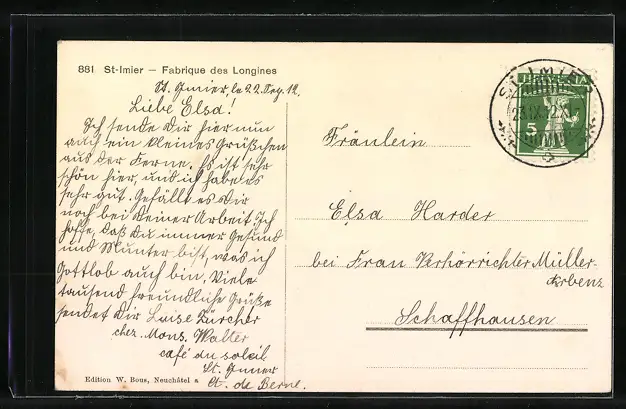 881 St-Imier — Fabrique des Longines
St. Imier, le 22. Sep. 12.
Liebe Elsa!
Ich sende Dir hier nun
auch ein kleines Grüßchen
aus der Ferne. Es ist sehr
schön hier, und ich habe es
sehr gut. Gefällt es Dir
noch bei Deiner Arbeit. Ich
hoffe, daß Du immer Gesund
und Munter bist, was ich
Gottlob auch bin. Viele
tausend freundliche Grüße
sendet Dir Luise Zürcher
chez Mons. Walter
café du soleil
St. Immer
Ct. de Berne.
Edition W. Bous, Neuchâtel a
Fräulein
Elsa Harder
bei Frau Verhörrichter Müller-
Arbenz
Schaffhausen
ST. IMIER
HELVETIA
5